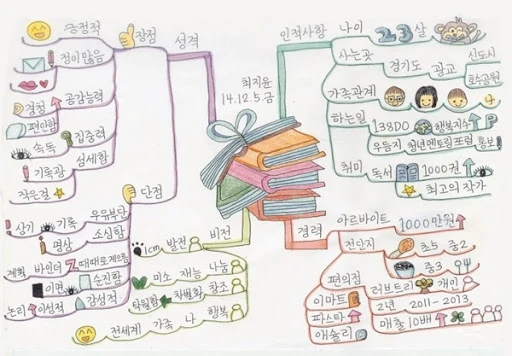 최지윤
14.12.5.금
인적사항
나이
23살
사는곳
경기도
광교
신도시
호수공원
가족관계
4
하는일
138DO
행복지수
우등지
청년멘토링포럼
홍보
취미
독서
1000권
최고의 작가
경력
아르바이트
1000만원
전단지
초5 중2
중3
편의점
러브트리
개인
이마트
2년 2011-2013
파스타
매출 10배
애슐리
성격
장점
긍정적
정이 많음
공감능력
경청
편안함
집중력
속독
섬세함
기록광
작은걸
단점
우유부단
기록
상기
소심함
명상
때때로게으름
바인더
계획
순진함
이면
감성적
이성적
논리
비전
1cm
발전
나눔
재능
미소
창조
차별화
탁월함
행복
나
가족
전세계